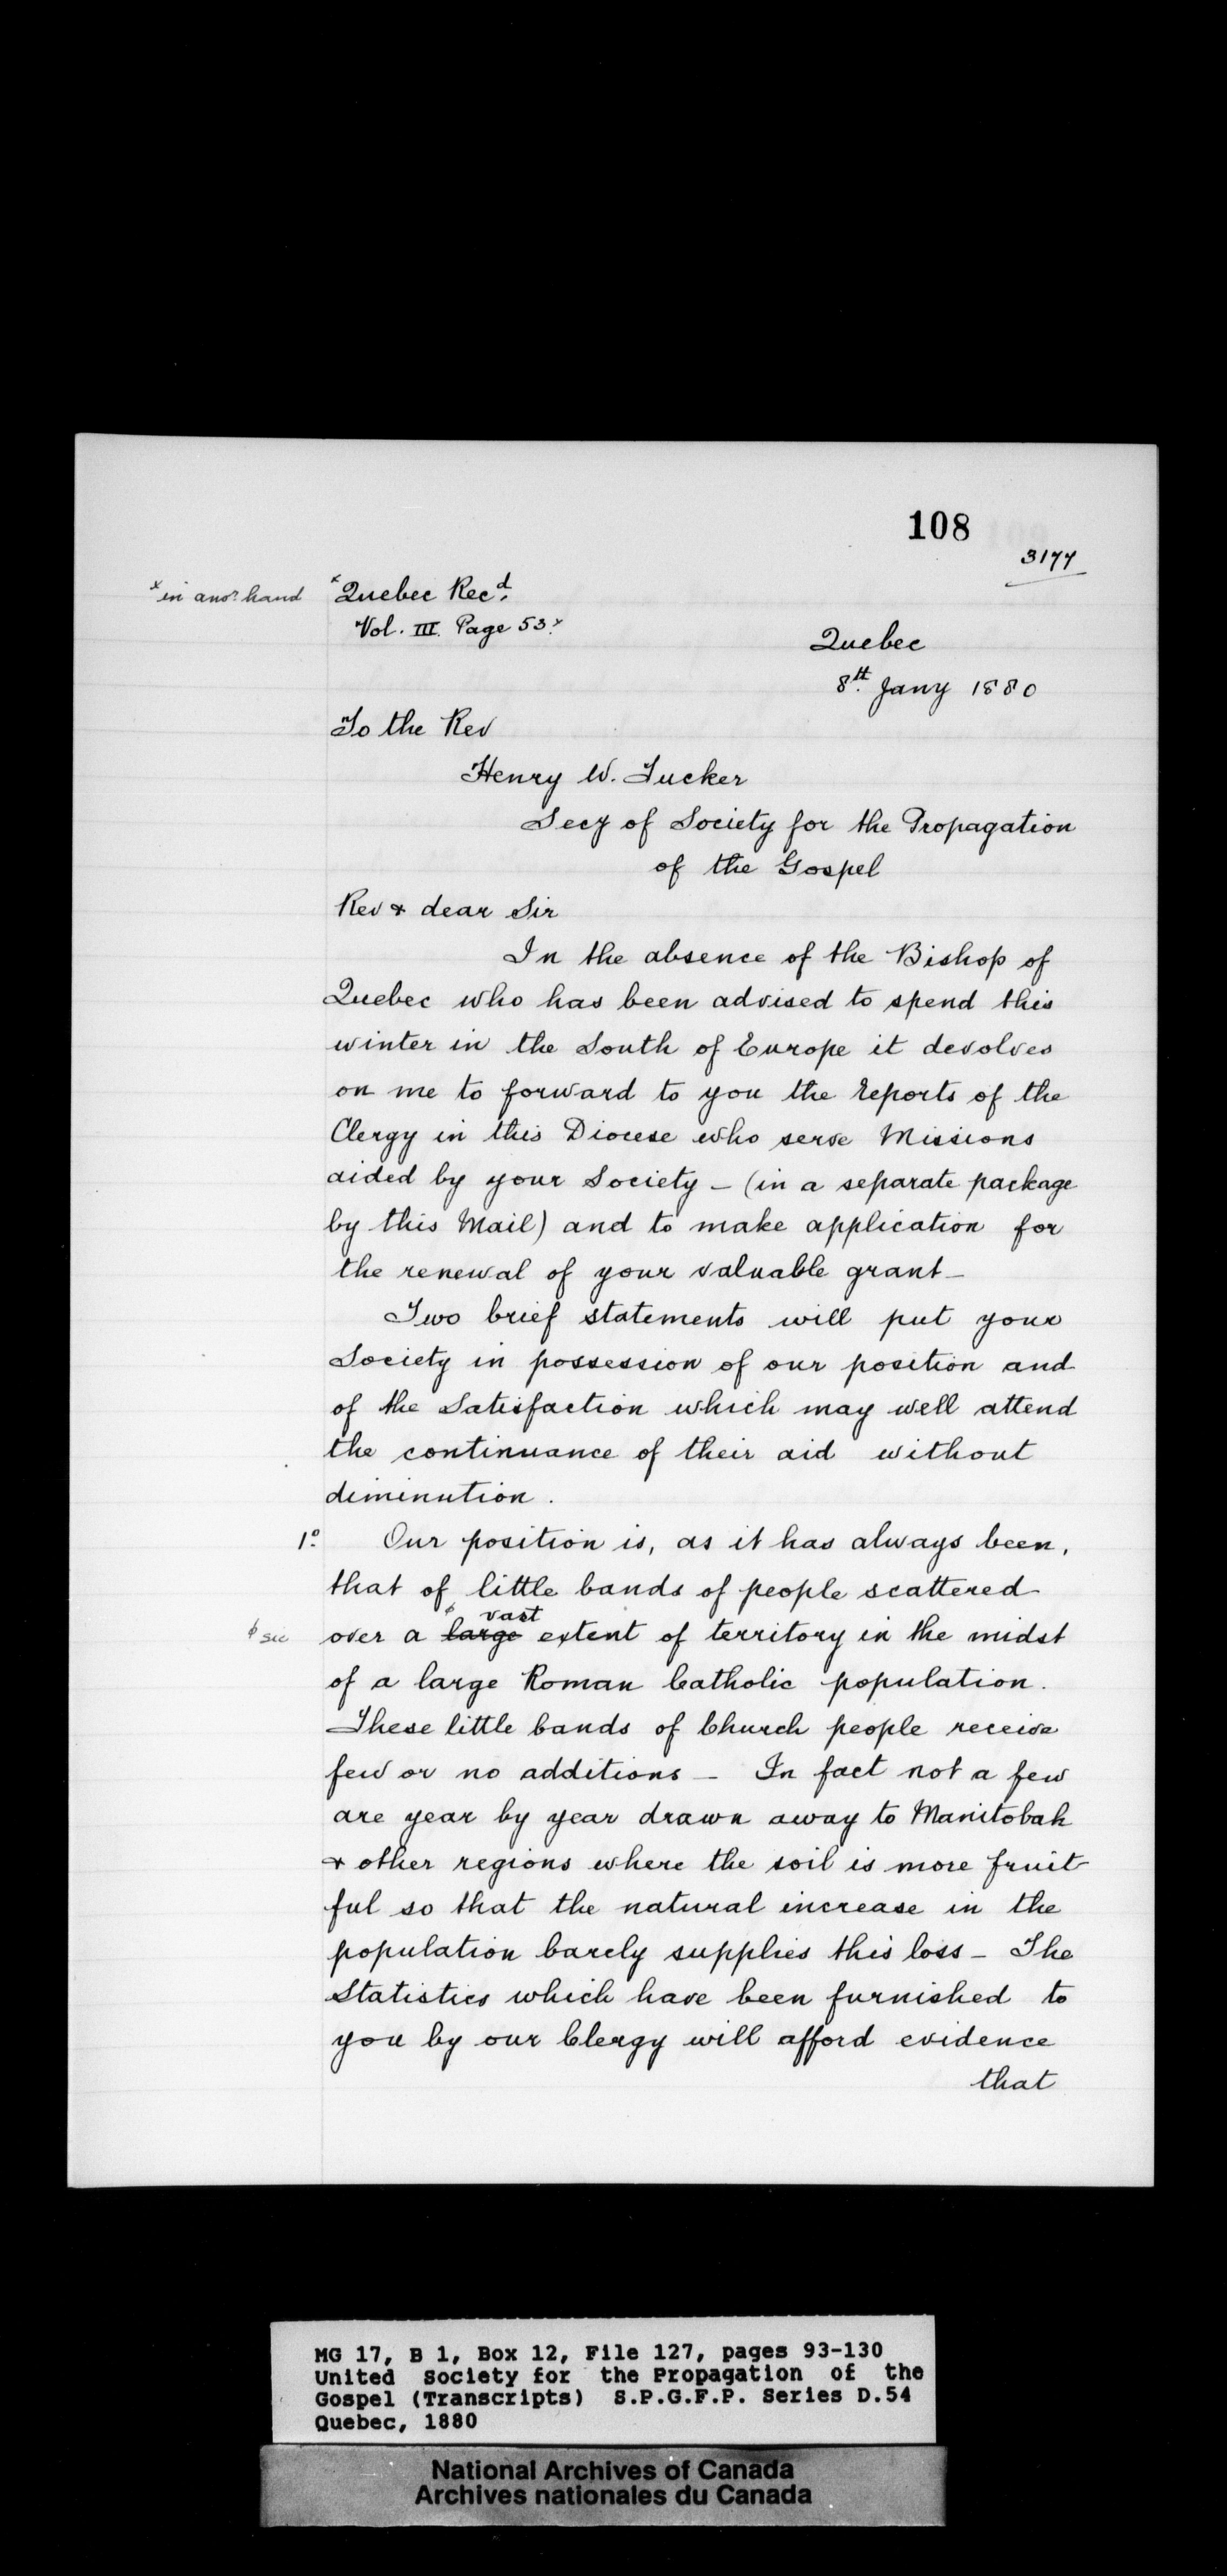 108
3177
x in anor. hand
x Quebec Recd.
Vol. III. Page 53. x
Quebec
8th. Jany 1880
To the Rev
Henry W. Tucker
Secy of Society for the Propagation
of the Gospel
Rev & dear Sir
In the absence of the Bishop of
Quebec who has been advised to spend this
winter in the South of Europe it devolves
on me to forward to you the Reports of the
Clergy in this Diocese who serve Missions
aided by your Society – (in a separate package
by this Mail) and to make application for
the renewal of your valuable grant –
Two brief statements will put your
Society in possession of our position and
of the Satisfaction which may well attend
the continuance of their aid without
diminution.
1o. Our position is, as it has always been,
that of little bands of people scattered
ϕ vast
ϕ sic over a large extent of territory in the midst
of a large Roman Catholic population.
These little bands of Church people receive
few or no additions – In fact not a few
are year by year drawn away to Manitobah
& other regions where the soil is more fruit-
ful so that the natural increase in the
population barely supplies this loss – The
Statistics which have been furnished to
you by our Clergy will afford evidence
that
MG 17, B 1, Box 12, File 127, pages 93-130
United Society for the Propagation of the
Gospel (Transcripts) S.P.G.F.P. Series D.54
Quebec, 1880
National Archives of Canada
Archives nationales du Canada